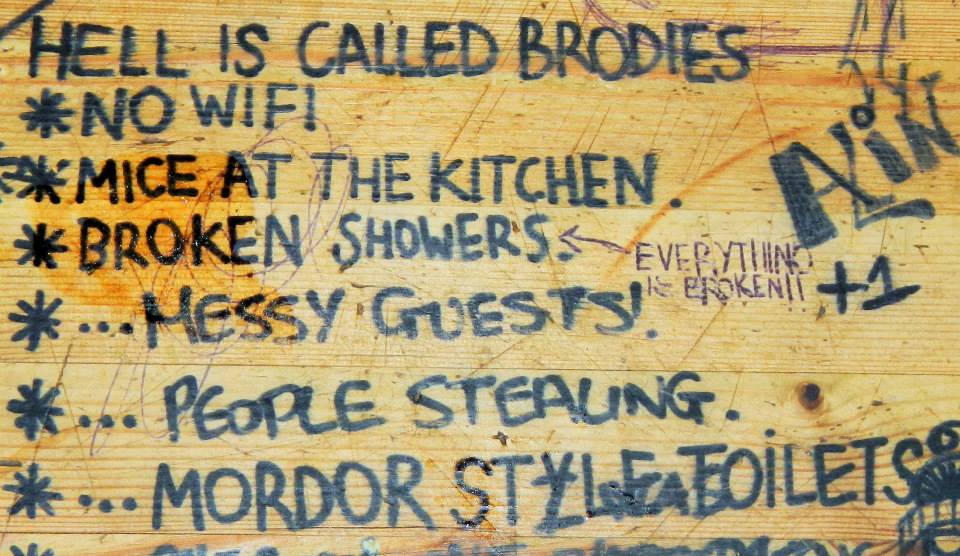 HELL IS CALLED BRODIES
*NO WIFI
*MICE AT THE KITCHEN.
*BROKEN SHOWERS.
EVERYTHING
IS BROKEN!!
+1
*...MESSY GUESTS!
*... PEOPLE STEALING.
*... MORDOR STYLE TOILETS